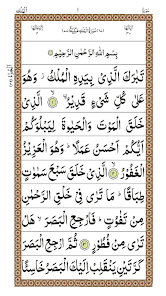 بِسْمِ اللّٰهِ الرَّحْمٰنِ الرَّحِيْمِ
تَبٰرَكَ الَّذِيْ بِيَدِهِ الْمُلْكُ وَهُوَ
عَلٰى كُلِّ شَيْءٍ قَدِيْرُ الَّذِيْ
خَلَقَ الْمَوْتَ وَالْحَيٰوةَ لِيَبْلُوَكُمْ
اَيُّكُمْ اَحْسَنُ عَمَلًا وَهُوَ الْعَزِيْزُ
الْغَفُوْرُ الَّذِيْ خَلَقَ سَبْعَ سَمٰوٰتٍ
طِبَاقًا مَا تَرٰى فِيْ خَلْقِ الرَّحْمٰنِ
مِنْ تَفٰوُتٍ فَارْجِعِ الْبَصَرَ هَلْ
تَرٰى مِنْ فُطُوْرٍ ثُمَّ ارْجِعِ الْبَصَرَ
كَرَّتَيْنِ يَنْقَلِبْ اِلَيْكَ الْبَصَرُ خَاسِئًا